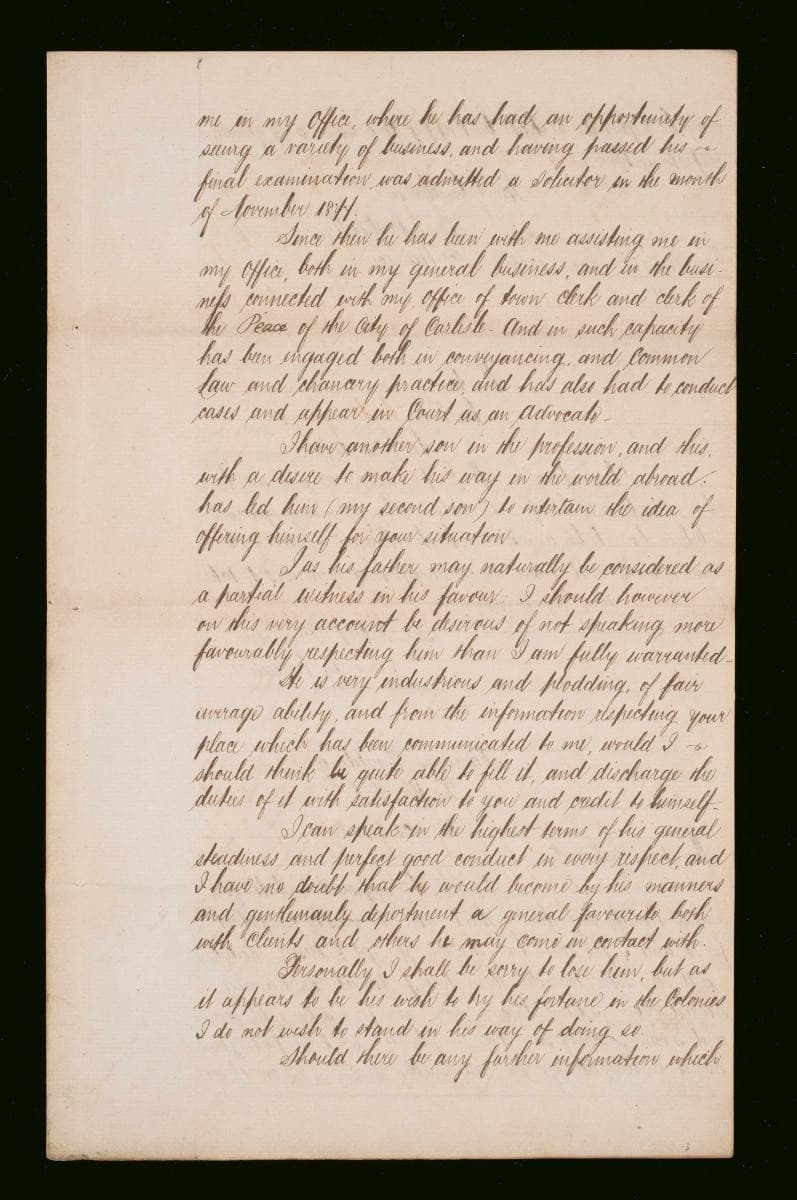 me in my Office, where he has had an opportunity of
seeing a variety of business, and having passed his
final examination, was admitted a Solicitor in the month
of November 1877.
Since then he has been with me assisting me in
my Office, both in my general business, and in the busi-
ness connected with my Office of town Clerk and clerk of
the Peace of the City of Carlisle - And in such capacity
has been engaged both in conveyancing, and Common
Law and chancery practice, and has also had to conduct
cases and appear in Court as an Advocate -
I have another son in the profession, and this,
with a desire to make his way in the world abroad,
has led him (my second son) to entertain the idea of
offering himself for your situation.
I as his father may naturally be considered as
a partial witness in his favour. I should however
on this very account be desirous of not speaking more
favourably respecting him than I am fully warranted -
He is very industrious and plodding, of fair
average ability, and from the information respecting your
place which has been communicated to me, would I
should think be quite able to fill it, and discharge the
duties of it with satisfaction to you and credit to himself -
I can speak in the highest terms of his general
steadiness and perfect good conduct in every respect, and
I have no doubt that he would become by his manners
and gentlemanly deportment a general favourite both
with Clients and others he may come in contact with.
Personally I shall be sorry to lose him, but as
it appears to be his wish to try his fortune in the Colonies
I do not wish to stand in his way of doing so.
Should there be any further information which